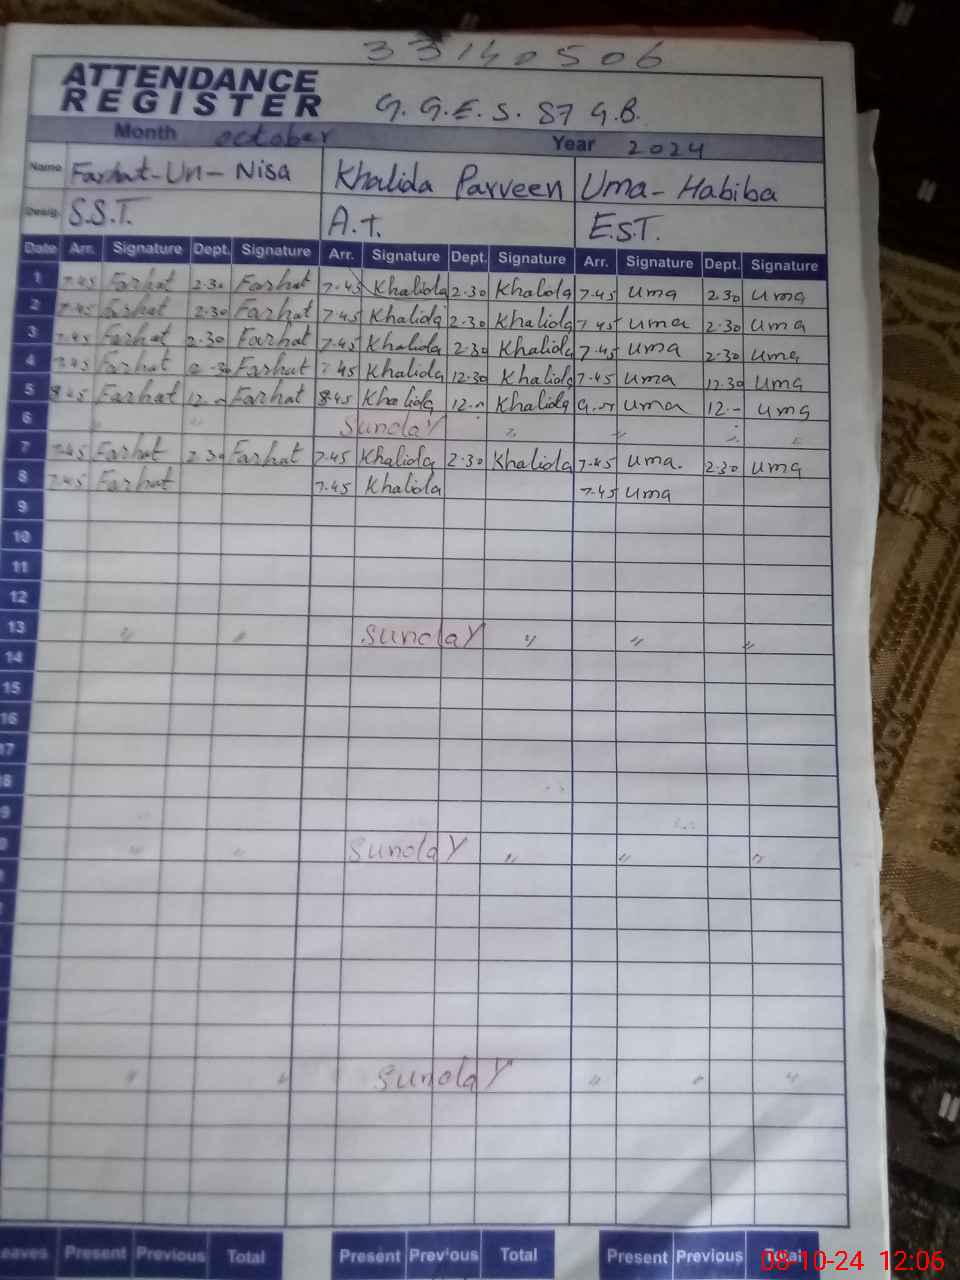 33140506
ATTENDANCE
REGISTER G.G.E.S. 87 G.B.
Month october Year 2024
Name Farhat-Un-Nisa Khalida Parveen Uma-Habiba
Desig. S.S.T. A.T. E.S.T.
Date Arr. Signature Dept. Signature Arr. Signature Dept. Signature Arr. Signature Dept. Signature
1 7.45 Farhat 2.30 Farhat 7.45 Khalida 2.30 Khalida 7.45 uma 2.30 uma
2 7.45 Farhat 2.30 Farhat 7.45 Khalida 2.30 Khalida 7.45 uma 2.30 uma
3 7.45 Farhat 2.30 Farhat 7.45 Khalida 2.30 Khalida 7.45 uma 2.30 uma
4 7.45 Farhat Farhat 7.45 Khalida 12.30 Khalida 7.45 uma 12.30 uma
5 8.45 Farhat 12 Farhat 8.45 Khalida 12 Khalida uma 12 uma
6 " " Sunday " " " "
7 7.45 Farhat 2.30 Farhat 7.45 Khalida 2.30 Khalida 7.45 uma. 2.30 uma
8 7.45 Farhat 7.45 Khalida 7.45 uma
9
10
11
12
13 " " Sunday " " "
14
15
16
17
8
9
0 " " Sunday " " "
" " Sunday " " "
eaves Present Previous Total Present Previous Total Present Previous Total
08-10-24 12:06